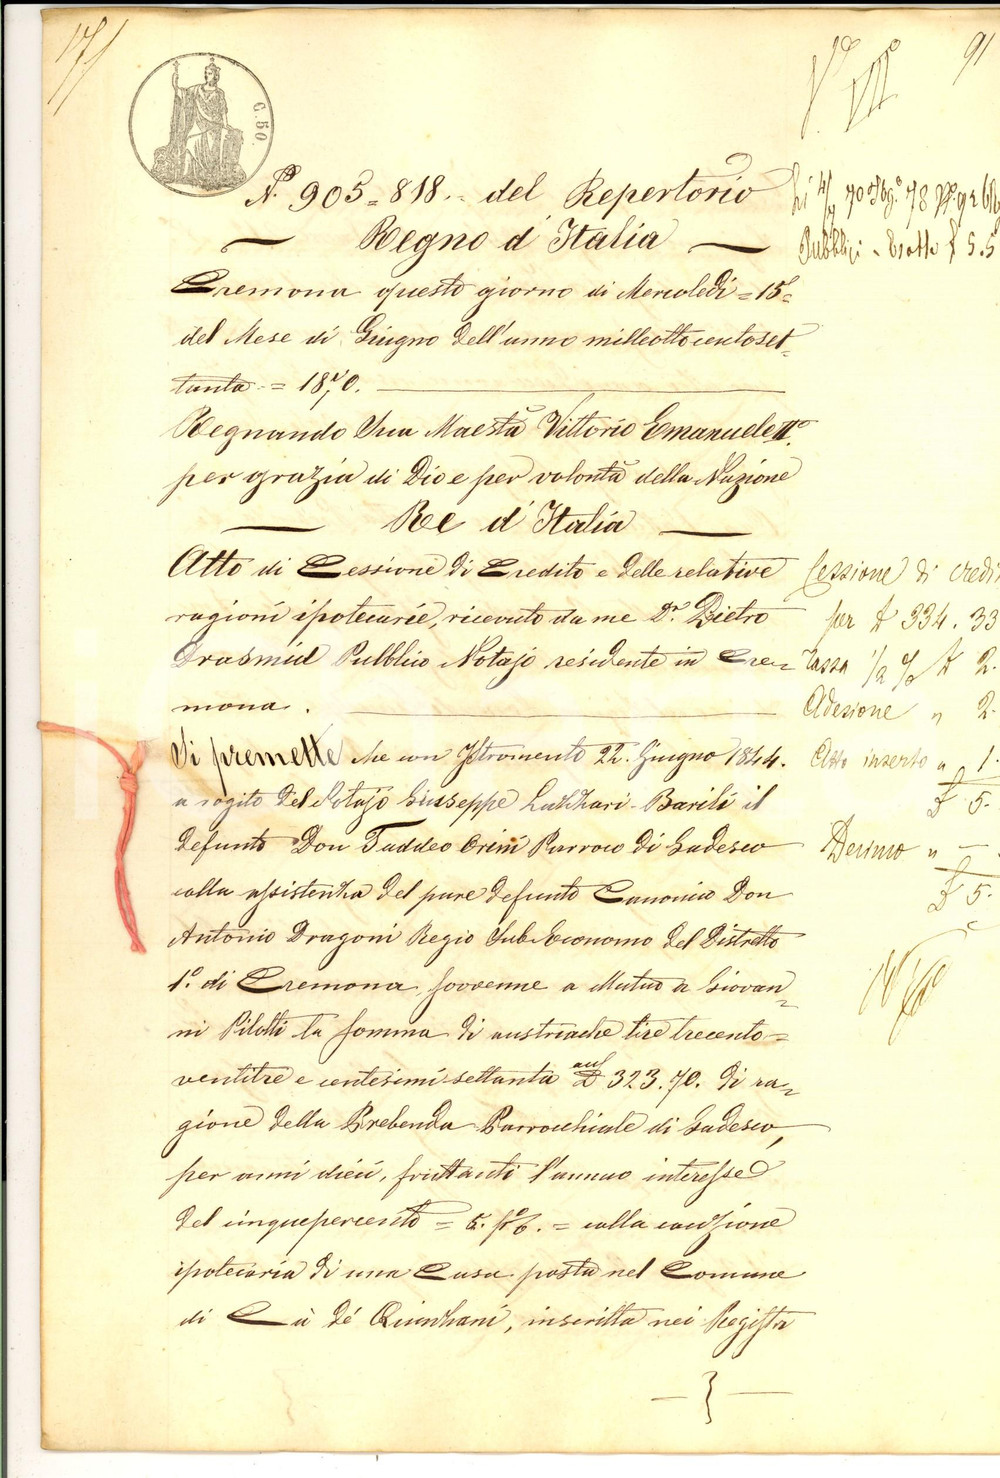 91
C. 50.
N.° 903=818. del Repertorio
Regno d'Italia
Cremona questo giorno di Mercoledì = 15 =
del Mese di Giugno dell'anno milleottocentoset-
tanta = 1870.
Regnando Sua Maestà Vittorio Emanuele II.°
per grazia di Dio e per volontà della Nazione
Re d'Italia
Atto di Cessione di Credito e delle relative
ragioni ipotecarie, ricevuto da me D.r Pietro
Pubblico Notajo residente in Cre-
mona.
Si premette che con Istromento 22. Giugno 1844.
a rogito del Notajo Giuseppe Barili il
defunto Don Taddeo Parroco di Gadesco
colla assistenza del pure defunto Canonico Don
Antonio Dragoni Regio Sub Economo del Distretto
1.° di Cremona, sovvenne a Mutuo a Giovan-
ni Pilotti la somma di austriache lire trecento=
ventitre e centesimi settanta aul £ 323.70. di ra-
gione della Prebenda Parrocchiale di Gadesco,
per anni dieci, fruttanti l'annuo interesse
del cinquepercento = 5. p% . = colla cauzione
ipotecaria di una Casa posta nel Comune
di Cà dè Quinzani, inscritta nei Registri
Cessione di credi
per £ 334.33
Tassa 1/2 % £ 2.
Adesione " 2.
Atto inserto " 1.
£ 5.
Decimo " —
£ 5.